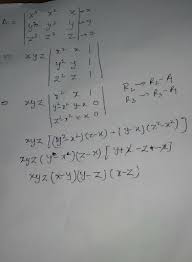 Δ = | x³ x² x | → x
| y³ y² y | → y
| z³ z² z | → z
⇒ xyz | x² x 1 |
| y² y 1 |
| z² z 1 |
R₂ → R₂-R₁
R₃ → R₃-R₁
⇒ xyz | x² x 1 |
| y²-x² y-x 0 |
| z²-x² z-x 0 |
xyz [(y²-x²)(z-x) - (y-x)(z²-x²)]
xyz (y-x)(z-x) [y+x-z-x]
xyz (x-y)(y-z)(x-z)